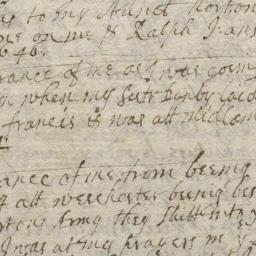 to my Aunt Norton
on me & Ralph
64
rance of me as I was going
when my sistr Danby laid
francis & was att midlam
ance of me from beeing
att westchester beeing bes
Army they shutt into y
I was at my prayers in y